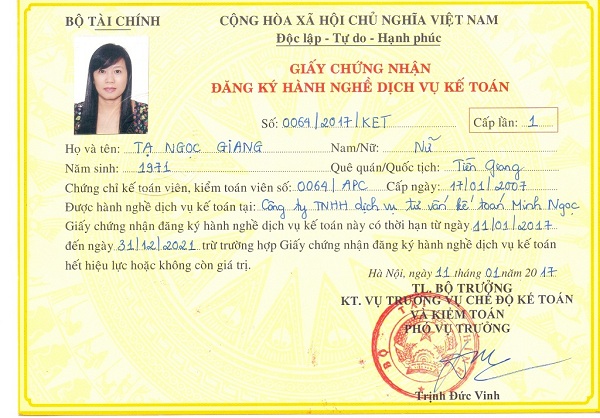 BỘ TÀI CHÍNH
CỘNG HÒA XÃ HỘI CHỦ NGHĨA VIỆT NAM
Độc lập - Tự do - Hạnh phúc
GIẤY CHỨNG NHẬN
ĐĂNG KÝ HÀNH NGHỀ DỊCH VỤ KẾ TOÁN
Số: 0064/2017/KET
Cấp lần: 1
Họ và tên: TẠ NGỌC GIANG Nam/Nữ: Nữ
Năm sinh: 1971 Quê quán/Quốc tịch: Tiền Giang
Chứng chỉ kế toán viên, kiểm toán viên số: 0064/APC Cấp ngày: 17/01/2007
Được hành nghề dịch vụ kế toán tại: Công ty TNHH dịch vụ tư vấn kế toán Minh Ngọc
Giấy chứng nhận đăng ký hành nghề dịch vụ kế toán này có thời hạn từ ngày 11/01/2017
đến ngày 31/12/2021 trừ trường hợp Giấy chứng nhận đăng ký hành nghề dịch vụ kế toán
hết hiệu lực hoặc không còn giá trị.
Hà Nội, ngày 11 tháng 01 năm 2017
TL. BỘ TRƯỞNG
KT. VỤ TRƯỞNG VỤ CHẾ ĐỘ KẾ TOÁN
VÀ KIỂM TOÁN
PHÓ VỤ TRƯỞNG
Trịnh Đức Vinh